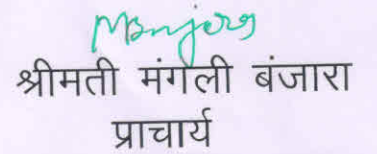 श्रीमती मंगली बंजारा
प्राचार्य